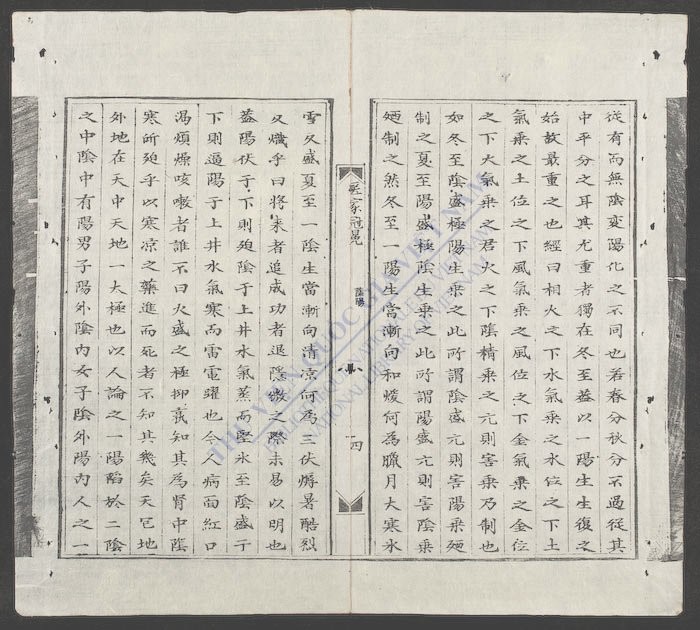 從有而無陰變陽化之不同也若春分秋分不過從其
中平分之耳其尤重者獨在冬至葢以一陽生生復之
始故最重之也經曰相火之下水氣乗之水位之下土
氣乗之土位之下風氣乗之風位之下金氣乗之金位
之下火氣乗之君火之下隂精乗之亢則害乗乃制也
如冬至陰盛極陽生乗之此所謂陰盛亢則害陽乗廼
制之夏至陽盛極陰生乗之此所謂陽盛亢則害陰乗
廼制之然冬至一陽生當漸向和煖何為臘月大寒氷
醫家冠冕
陰陽
四
雪又盛夏至一陰生當漸向清凉何為三伏溽暑酷烈
又熾乎曰將来者追成功者退隱微之際未易以明也
葢陽伏于下則廹陰于上井水氣蒸而堅氷至陰盛于
下則逼陽于上井水氣寒而雷電躍也今人病面紅口
渴煩燥咳嗽者誰不曰火盛之極抑孰知其為腎中陰
寒所廹乎以寒凉之藥進而死者不知其幾矣天包地
外地在天中天地一大極也以人論之一陽䧟於二陰
之中陰中有陽男子陽外陰内女子陰外陽内人之一
THƯ VIỆN QUỐC GIA VIỆT NAM
NATIONAL LIBRARY OF VIETNAM